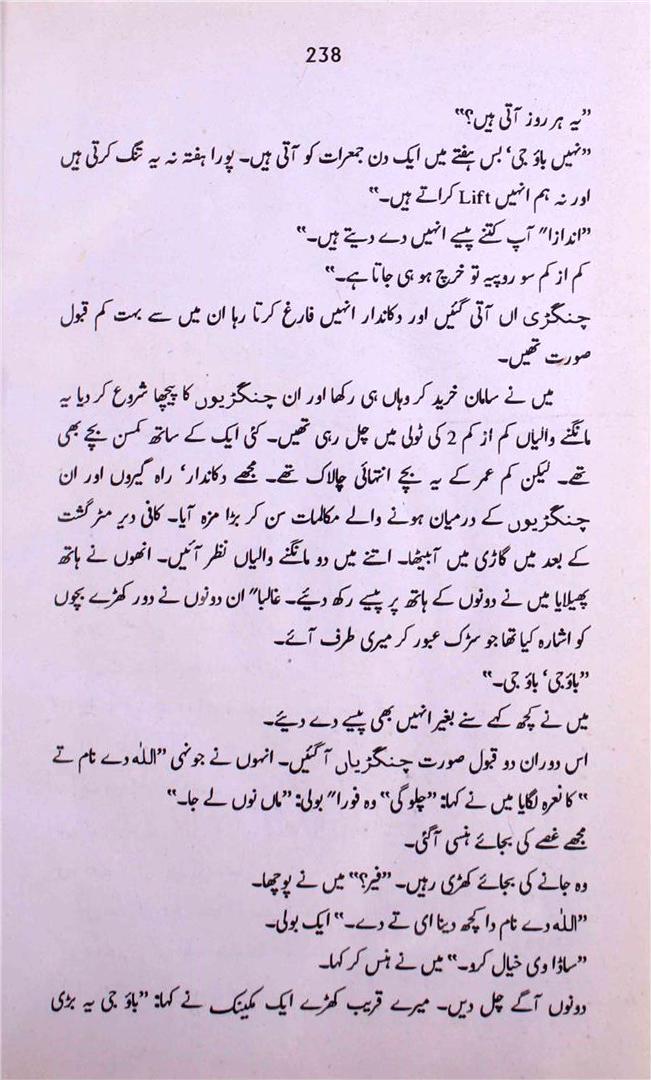 238
”یہ ہر روز آتی ہیں؟“
”نہیں باؤ جی‘ بس ہفتے میں ایک دن جمعرات کو آتی ہیں۔ پورا ہفتہ نہ یہ تنگ کرتی ہیں
اور نہ ہم انہیں Lift کراتے ہیں۔“
”اندازا“ آپ کتنے پیسے انہیں دے دیتے ہیں۔“
کم از کم سو روپیہ تو خرچ ہو ہی جاتا ہے۔“
چنگڑی اں آتی گئیں اور دکاندار انہیں فارغ کرتا رہا ان میں سے بہت کم قبول
صورت تھیں۔
میں نے سامان خرید کر وہاں ہی رکھا اور ان چنگڑیوں کا پیچھا شروع کر دیا یہ
مانگنے والیاں کم از کم 2 کی ٹولی میں چل رہی تھیں۔ کئی ایک کے ساتھ کمسن بچے بھی
تھے۔ لیکن کم عمر کے یہ بچے انتہائی چالاک تھے۔ مجھے دکاندار‘ راہ گیروں اور ان
چنگڑیوں کے درمیان ہونے والے مکالمات سن کر بڑا مزہ آیا۔ کافی دیر مٹر گشت
کے بعد میں گاڑی میں آبیٹھا۔ اتنے میں دو مانگنے والیاں نظر آئیں۔ انھوں نے ہاتھ
پھیلایا میں نے دونوں کے ہاتھ پر پیسے رکھ دیئے۔ غالبا“ ان دونوں نے دور کھڑے بچوں
کو اشارہ کیا تھا جو سڑک عبور کر میری طرف آئے۔
”باؤ جی‘ باؤ جی۔“
میں نے کچھ کہے سنے بغیر انہیں بھی پیسے دے دیئے۔
اس دوران دو قبول صورت چنگڑیاں آ گئیں۔ انہوں نے جونہی ”اللہ دے نام تے
“ کا نعرہ لگایا میں نے کہا: ”چلو گی“ وہ فورا“ بولی: ”ماں نوں لے جا۔“
مجھے غصے کی بجائے ہنسی آگئی۔
وہ جانے کی بجائے کھڑی رہیں۔ ”فیر؟“ میں نے پوچھا۔
”اللہ دے نام دا کچھ دینا ای تے دے۔“ ایک بولی۔
”ساڈا وی خیال کرو۔“ میں نے ہنس کر کہا۔
دونوں آگے چل دیں۔ میرے قریب کھڑے ایک مکینک نے کہا: ”باؤ جی یہ بڑی